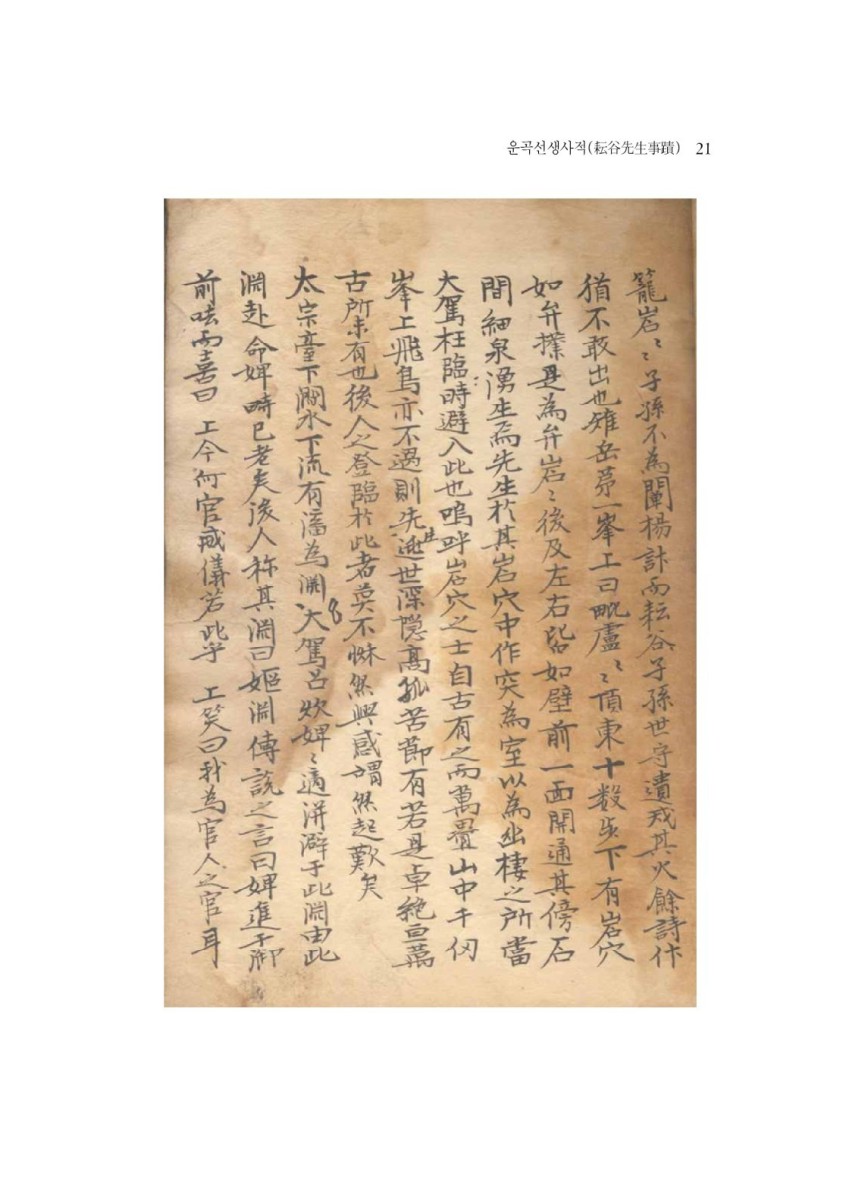 운곡선생사적(耘谷先生事蹟) 21
籠岩〻子孫不為闡楊計而耘谷子孫世守遺戒其火餘詩什
猶不敢出也雉岳第一峯上曰毗盧〻頂東十數步下有岩穴
如弁㨾是為弁岩〻後及左右皆如壁前一面開通其傍石
間細泉湧生焉先生於其岩穴中作突為室以為幽棲之所當
大駕枉臨時避入此也嗚呼岩穴之士自古有之而萬疊山中千仞
峯上飛鳥亦不過則先生遯世深隐高孤苦節有若是卓絶亘萬
古所未有也後人之登臨於此者莫不悚然興感喟然起歎矣
太宗臺下澗水下流有潘為淵大駕召炊婢〻適洴澼于此淵由此
淵赴命婢時已老矣後人称其淵曰嫗淵傳說之言曰婢進于御
前呿而喜曰 上今何官威儀若此乎 上笑曰我為官人之官耳